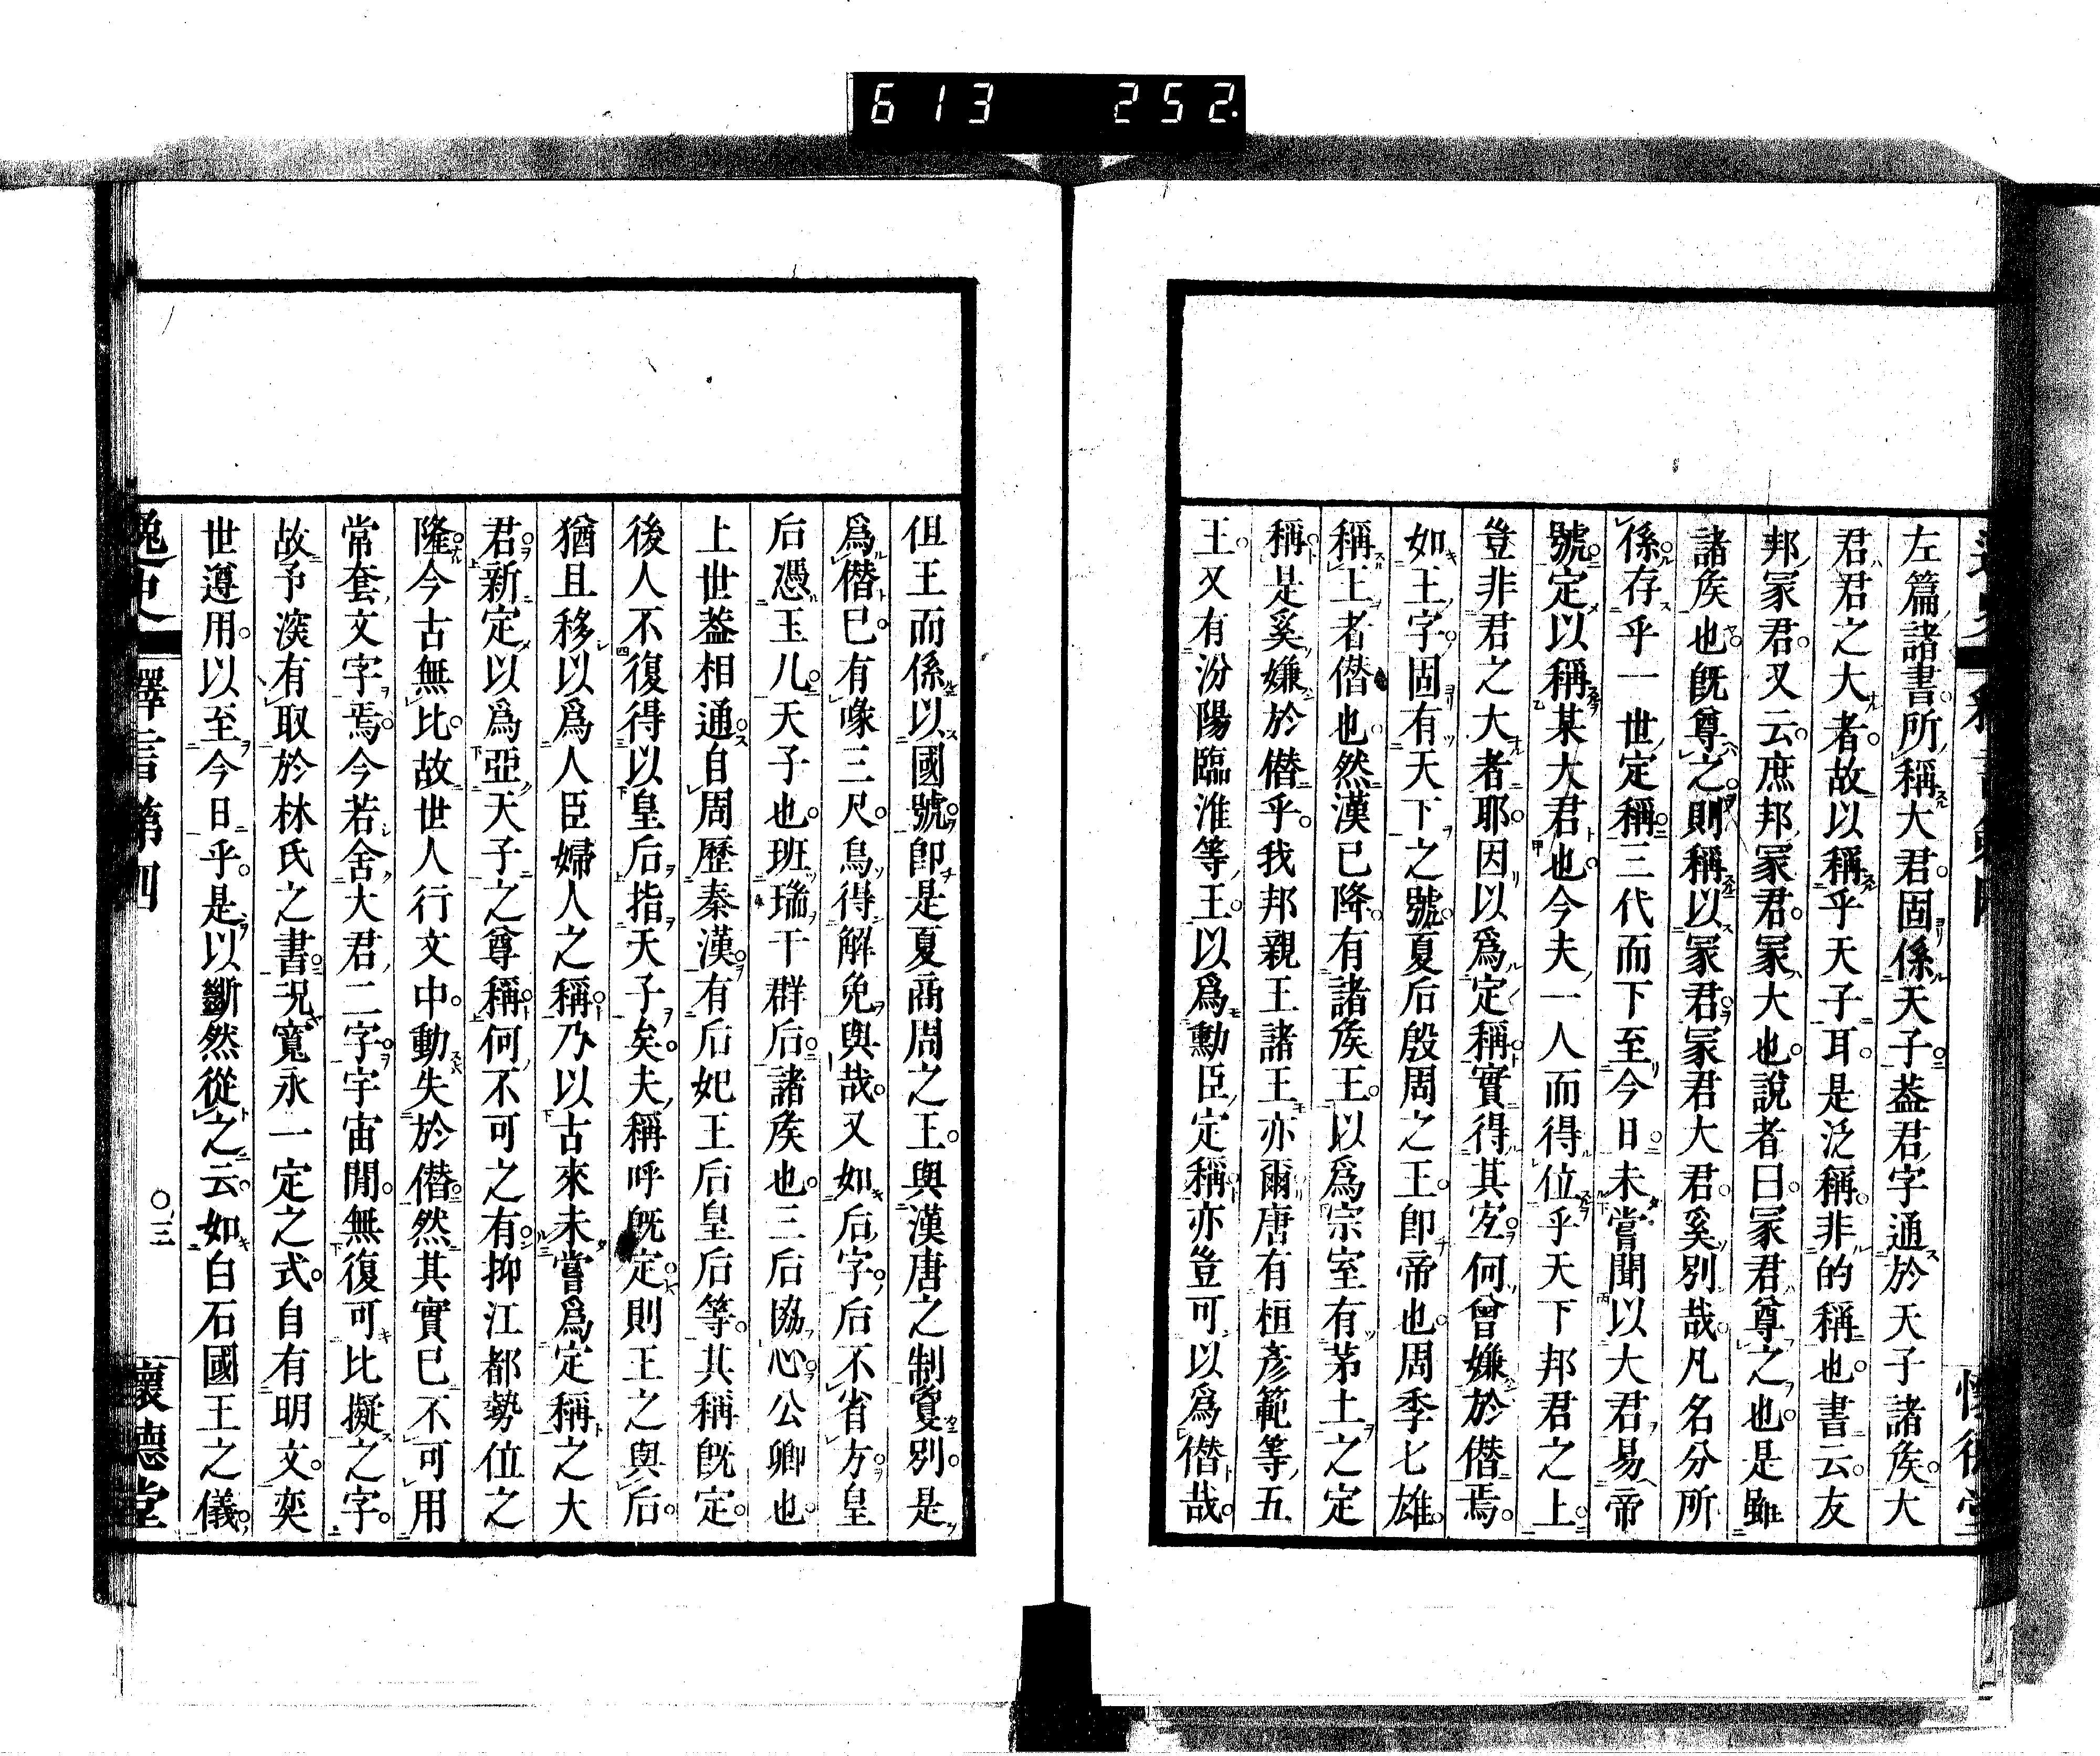 613 252
左篇諸書所稱大君固係天子蓋君字通於天子諸矦大
君君之大者故以稱乎天子耳是泛稱非的稱也書云友
邦冢君又云庶邦冢君冢大也說者曰冢君尊之也是雖
諸矦也既尊之則稱以冢君冢君大君奚別哉凡名分所
係存乎一世定稱三代而下至今日未嘗聞以大君易帝
號定以稱某大君也今夫一人而得位乎天下邦君之上
豈非君之大者耶因以爲定稱實得其宐何曾嫌於僭焉
如王字固有天下之號夏后殷周之王即帝也周季七雄
稱王者僭也然漢已降有諸矦王以爲宗室有茅土之定
稱是奚嫌於僭乎我邦親王諸王亦爾唐有桓彥範等五
王又有汾陽臨淮等王以爲勳臣定稱亦豈可以爲僭哉
但王而係以國號卽是夏商周之王與漢唐之制敻別是
爲僭已有喙三尺烏得解免與哉又如后字后不省方皇
后憑玉几天子也班瑞于群后諸矦也三后協心公卿也
上世蓋相通自周歷秦漢有后妃王后皇后等其稱既定
後人不復得以皇后指天子矣夫稱呼既定則王之與后
猶且移以爲人臣婦人之稱乃以古來未嘗爲定稱之大
君新定以爲亞天子之尊稱何不可之有抑江都勢位之
隆今古無比故世人行文中動失於僭然其實已不可用
常套文字焉今若舍大君二字宇宙閒無復可比擬之字
故予深有取於林氏之書況寬永一定之式自有明文奕
世遵用以至今日乎是以斷然從之云如白石國王之儀
逸史 釋言第四 〇三 懷德堂